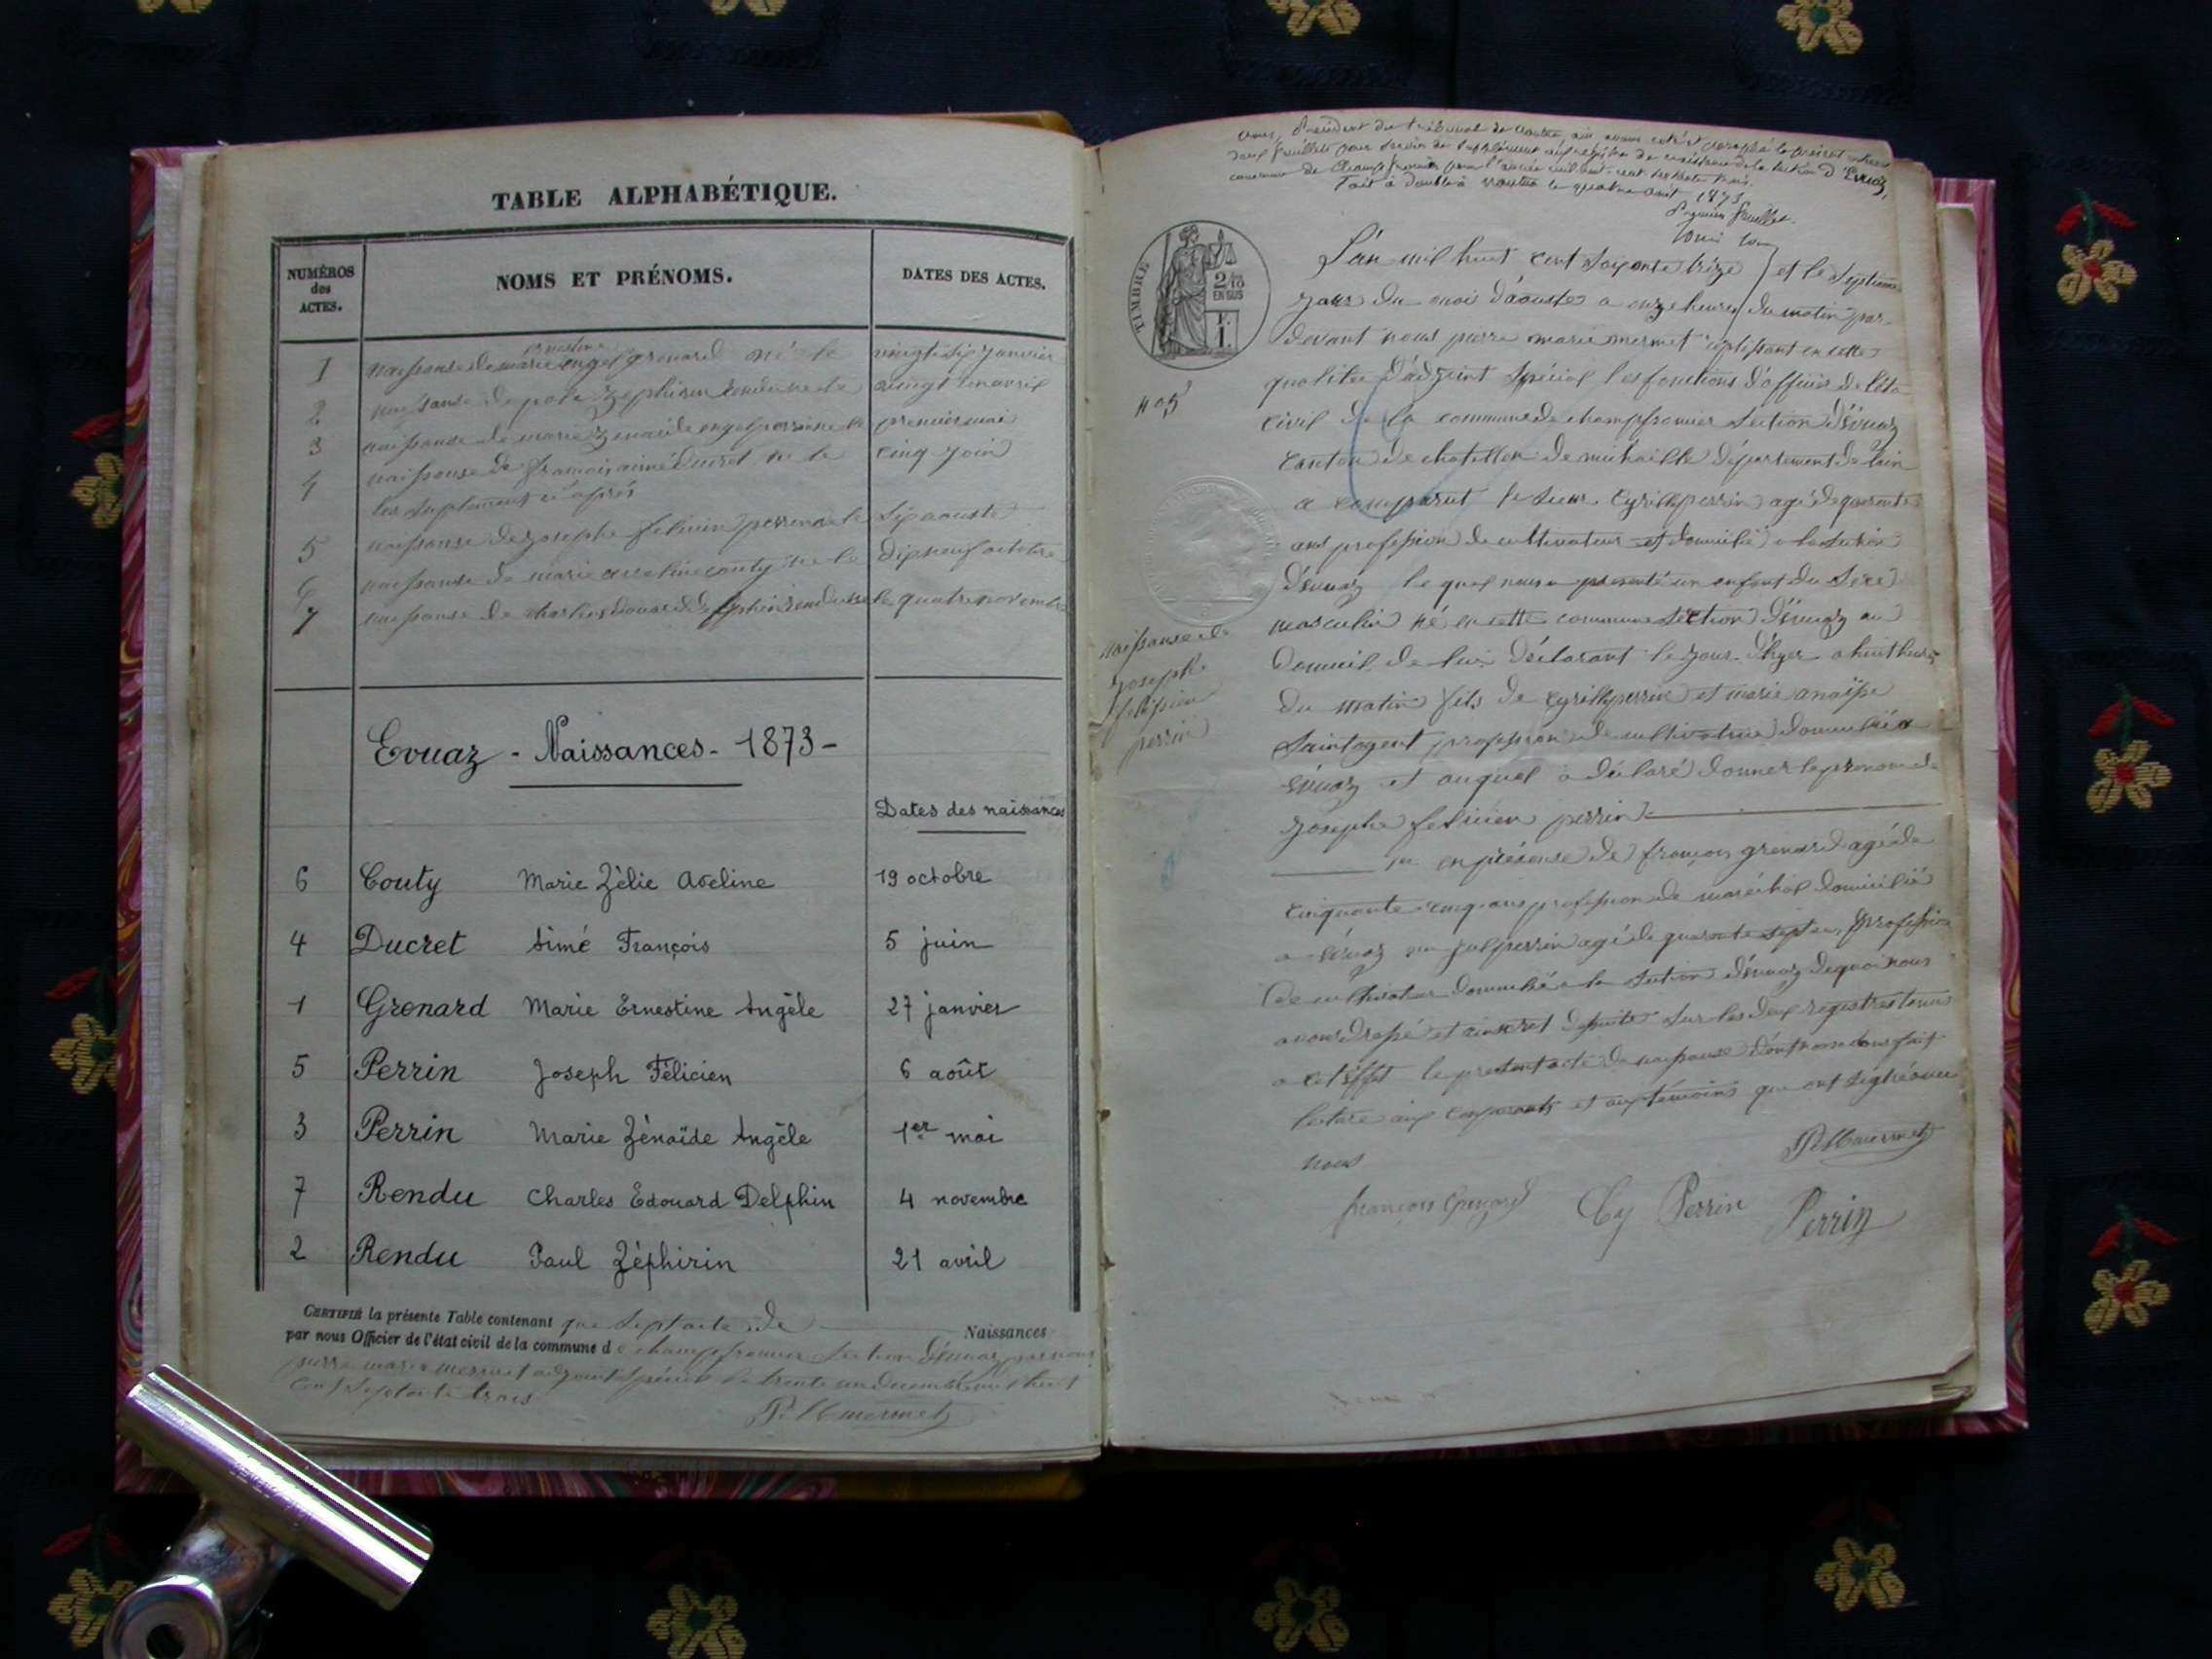 TABLE ALPHABÉTIQUE.
NUMÉROS des ACTES.
NOMS ET PRÉNOMS.
DATES DES ACTES.
ernestine
1 naissanse de marie engel grenard né le vingt sip janvier
2 naissanse de zephirin le vingt un avril
3 naissanse de marie zenaide engel perrin le premier mai
4 naissanse de francois aimé ducret né le cinq join
les suplement ci après
5 naissanse de josephe felicien perrin le sip aouste
6 naissanse de marie couty né le dipneuf octobre
7 naissanse de charles edouard delphin rendu le quatre novembre
Evuaz - Naissances - 1873 -
Dates des naissances
6 Couty Marie Zélie Aveline 19 octobre
4 Ducret Aimé François 5 juin
1 Grenard Marie Ernestine Angèle 27 janvier
5 Perrin Joseph Félicien 6 août
3 Perrin Marie Zénaïde Angèle 1er mai
7 Rendu Charles Edouard Delphin 4 novembre
2 Rendu Paul Zéphirin 21 avril
CERTIFIÉ la présente Table contenant que sept acte de Naissances
par nous Officier de l'état civil de la commune de champfromier section d'évuaz par nous
pierre marie mermet adjoint spécial le trente un decembre mil huit
cent septante trois
P. M mermet
nous, Président du tribunal de Nantua
deux feuillets pour servir de supplément au registre de naissance de la section d'Evuaz,
commune de Champfromier pour l'année mil huit-cent septante trois.
Fait à double à Nantua le quatre août 1873
Premier feuillet.
TIMBRE
2/10
EN SUS
1 F.
N° 5
naissanse de
joseph
felisien
perrin
L'an mil huit cent soixante trize et le septieme
jour du mois d'aouste a onze heures du matin par
devant nous pierre marie mermet remplissant en cette
qualitee d'adjoint spécial les fonctions d'officier de l'éta
civil de la commune de champfromier section d'évuaz
canton de chatillon de michaille département de l'ain
a comparut le sieur Cyrille perrin agé de quarente
ans profession de cultivateur et domicilié a la section
d'évuaz le quel nous a présenté un enfant du sexe
masculin né en cette commune section d'évuaz au
domicil de lui déclarant le jour d'hyer a huit heures
du matin fils de cyrille perrin et marie anaïse
saintogent profession de cultivatrice domicilié a
évuaz et auquel a déclaré donner le prenom de
josephe felicien perrin
en présence de françois grenard agé de
cinquante cinq ans profession de maréchal domicilié
a évuaz jul perrin agé de quarente sept an profession
de cultivateur domicilié a la section d'évuaz de quoi nous
avons dressé et sur les deux registres tenus
a cet effet le présent acte de naissance dont nous avons fait
lecture aux comparants et aux témoins que ont signé avec
nous
P. M mermet
françois Grenard Cy Perrin Perrin